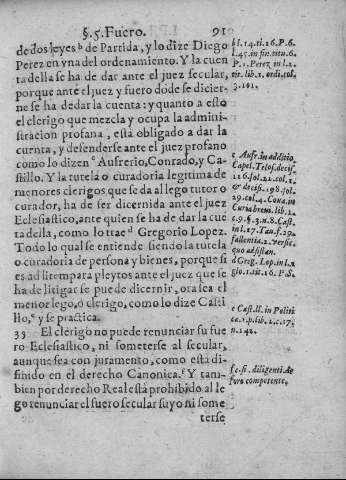 §. 5. Fuero. 91
de dos leyes b de Partida, y lo dize Diego
Perez en vna del ordenamiento. Y la cuen
ta della se ha de dar ante el juez secular,
porque ante el juez y fuero dõde se dicier-
ne se ha de dar la cuenta: y quanto a esto
el clerigo que mezcla y ocupa la admini-
stracion profana, està obligado a dar la
cuenta, y defenderse ante el juez profano
como lo dizen c Aufrerio, Conrado, y Ca-
stillo. Y la tutela o curadoria legitima de
menores clerigos que se da al lego tutor o
curador, ha de ser dicernida ante el juez
Eclesiastico, ante quien se ha de dar la cuē
ta della, como lo trae d Gregorio Lopez.
Todo lo qual se entiende siendo la tutela
o curadoria de persona y bienes, porque si
es ad litem para pleytos ante el juez que se
ha de litigar se puede dicernir, ora sea el
menor lego, ò clerigo, como lo dize Casti
llo, e y se practica.
33 El clerigo no puede renunciar su fue
ro Eclesiastico, ni someterse al secular,
aunque sea con juramento, como està di-
finido en el derecho Canonico. f Y tam-
bien por derecho Real està prohibido al le
go renunciar el fuero secular suyo ni some
terse
b l. 14. tit. 16. P. 6.
l. 45. in fin. titu. 6.
P. 1. Perez in l. 1.
tit. lib. 1. ordi. col.
3. 101.
c Aufr. in additio.
Capel. Tolos. decis.
116. fol. 21. col. 2.
& decis. 198. fol.
29. col. 4. Conra. in
Curia breui. lib. 1.
c. 9. §. 3. n. 8. Cast.
in l. 17. Tau. f. 29.
fallentia 2. versic.
quo ad sistan.
d Greg. Lop. in l. 2
glo. 1. tit. 16. P. 5.
e Cast. ll. in Politi
ca. 1. p. lib. 2. c. 17.
n. 142.
f c. si diligenti. de
foro competente.